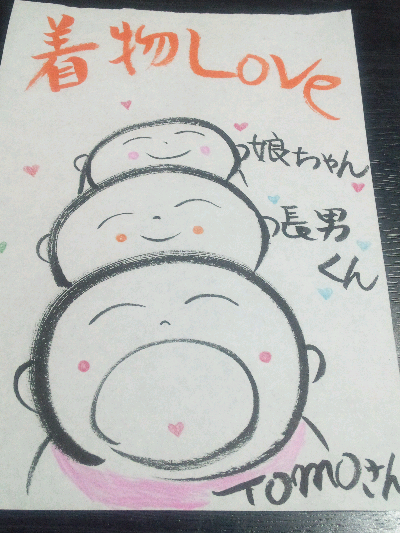 着物Love
娘ちゃん
長男
くん
TOMOさん